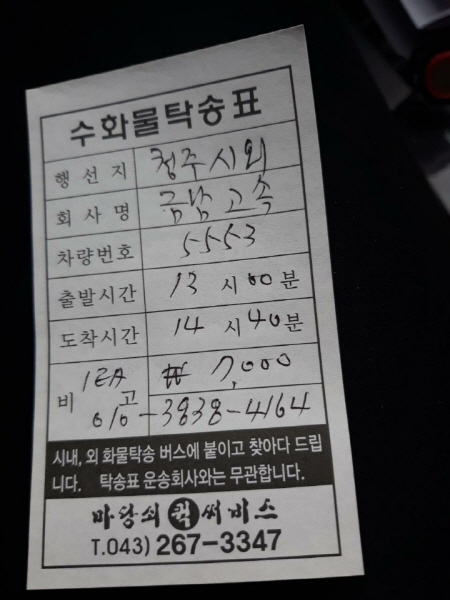 수화물탁송표
행선지 청주시외
회사명 금남고속
차량번호 5553
출발시간 13시00분
도착시간 14시40분
비고 1EA ₩7,000
010-3838-4164
시내, 외 화물탁송 버스에 붙이고 찾아다 드립
니다. 탁송표 운송회사와는 무관합니다.
마당쇠퀵써비스
T.043) 267-3347